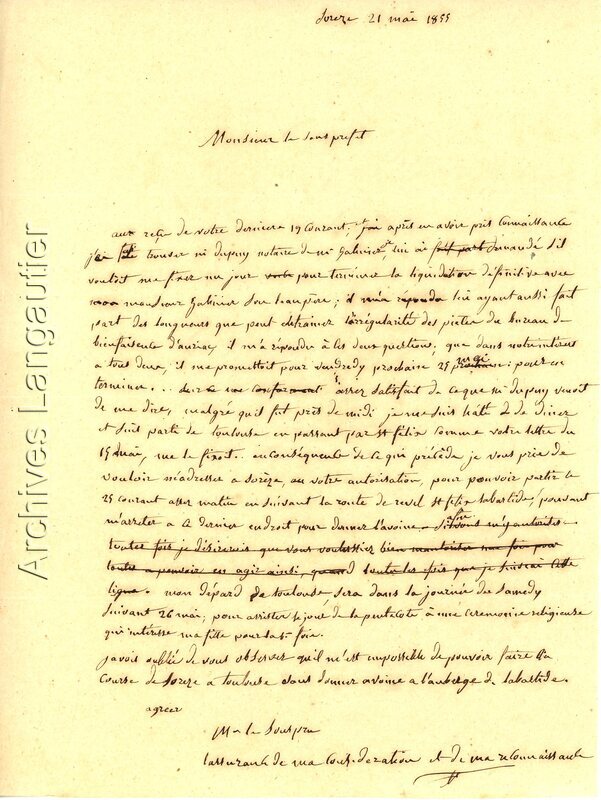 Soreze 21 mai 1855
Monsieur le sous prefet
aux reçu de votre derniere 19 courant, j'ai après en avoir pris connaissance
j'ai été trouver mr dupuy notaire de mr Gabiner, lui ai fait part demandé s'il
vouloit me fixer un jour pour terminer la liquidation définitive avec
monsieur Gabiner son beaupère; il m'a répondu lui ayant aussi fait
part des longueurs que peut entrainer l'irrégularité des pièces du bureau de
bienfaisance d'auriac il m'a répondu à les deux question. que dans notre intérès
a tous deux, il me promettoit pour vendredy prochaine 25 mai pour en
terminer... assez satisfait de ce que mr dupuy venoit
de me dire, malgré qu'il fut près de midi je me suis hâté de diner
et suis parti de toulouse en passant par st félix comme votre lettre du
15 mai, me le fixoit.. en conséquence de ce qui précède je vous prie de
vouloir m'adresser a sorèze, ou votre autorisation, pour pouvoir partir le
25 courant asses matin en suivant la route de revel st felix labastide, pouvant
m'arreter a ce dernier endroit pour donner l'avoine
toutes fois je désirerois que vous voulussiez bien
toutes a pouvoir en agir ainsi, quand toutes les fois que je suivrai cette
ligne. mon départ de toulouse sera dans la journée de samedy
suivant 26 mai, pour assister le jour de la pentecote à une ceremonie religieuse
qui intéresse ma fille pour la 1re fois.
j'avois oublié de vous observer qu'il m'est impossible de pouvoir faire la
course de Soreze a toulouse sans donner avoine a l'auberge de labastide.
agreer
Mr le Souspre
l'assurance de ma considération et de ma reconnaissance
Archives Langautier